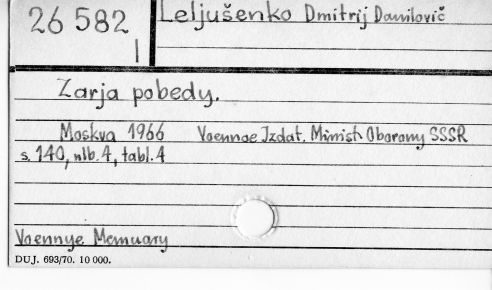 26 582 Leljušenko Dmitrij Danilovič
I
Zarja pobedy.
Moskva 1966 Voennoe Izdat. Minist. Oborony SSSR
s. 140, nlb. 4, tabl. 4
Voennye Memuary
DUJ. 693/70. 10 000.